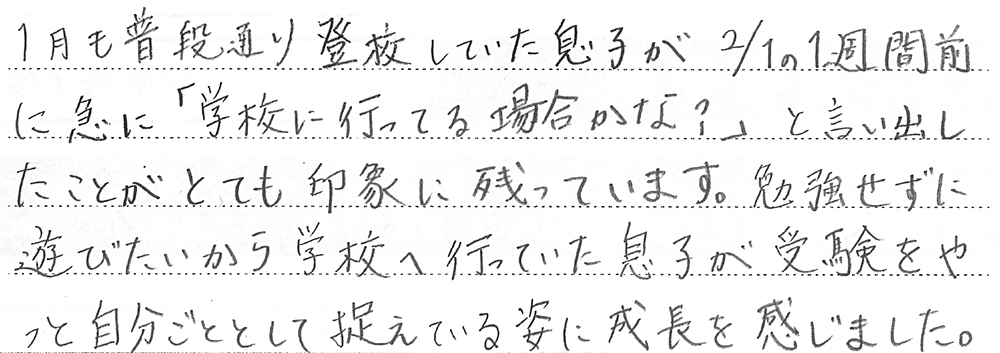 1月も普段通り登校していた息子が2/1の1週間前
に急に「学校に行ってる場合かな？」と言い出し
たことがとても印象に残っています。勉強せずに
遊びたいから学校へ行っていた息子が受験をや
っと自分ごととして捉えている姿に成長を感じました。